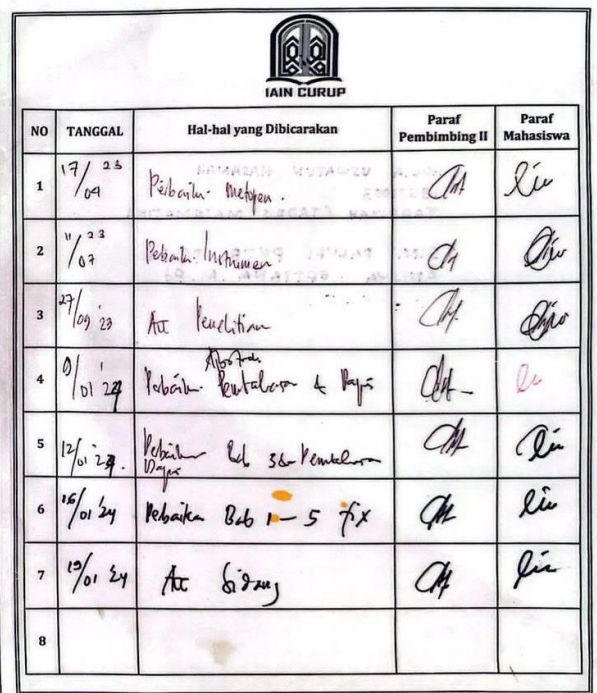 IAIN CURUP
NO TANGGAL Hal-hal yang Dibicarakan Paraf Pembimbing II Paraf Mahasiswa
1 17/04 23 Perbaikan metopen.
2 11/07 23 Perbaikan Instrumen
3 27/09 '23 Acc Penelitian
Abstrak
4 9/01 '24 Perbaikan Pembahasan &
5 12/01 '24. Perbaikan Bab 3 Pembahasan
6 16/01 '24 Perbaikan Bab 1 - 5 fix
7 19/01 '24 Acc Sidang
8